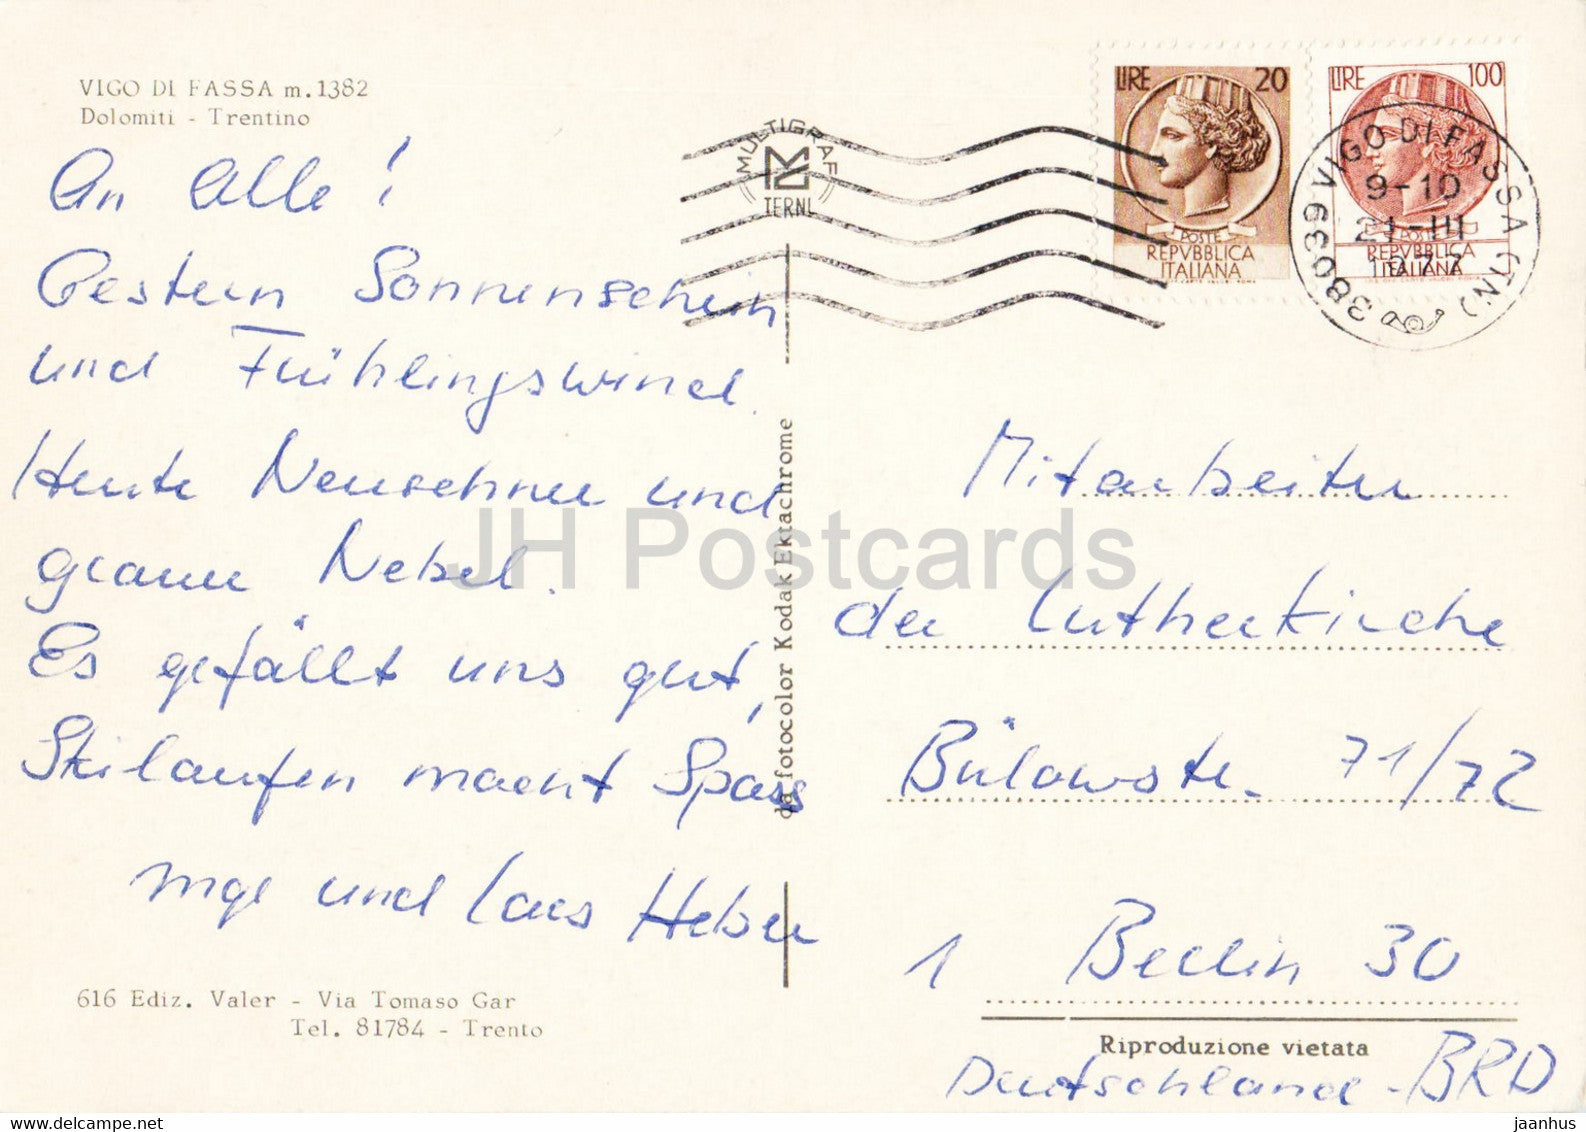 VIGO DI FASSA m. 1382
Dolomiti - Trentino
An Alle!
Gestern Sonnenschein
und Frühlingswind.
Heute Neuschnee und
grauer Nebel.
Es gefällt uns gut,
Skilaufen macht Spass
Inge und Lars Heber
616 Ediz. Valer - Via Tomaso Gar
Tel. 81784 - Trento
da fotocolor Kodak Ektachrome
MULTIGRAF
TERNI
LIRE 20
POSTE
REPVBBLICA
ITALIANA
LIRE 100
POSTE
REPVBBLICA
ITALIANA
38039 VIGO DI FASSA (TN)
9-10
21-III
1977
Mitarbeiter
der Lutherkirche
Bülowstr. 71/72
1 Berlin 30
Riproduzione vietata
Deutschland - BRD
JH Postcards
jaanhus